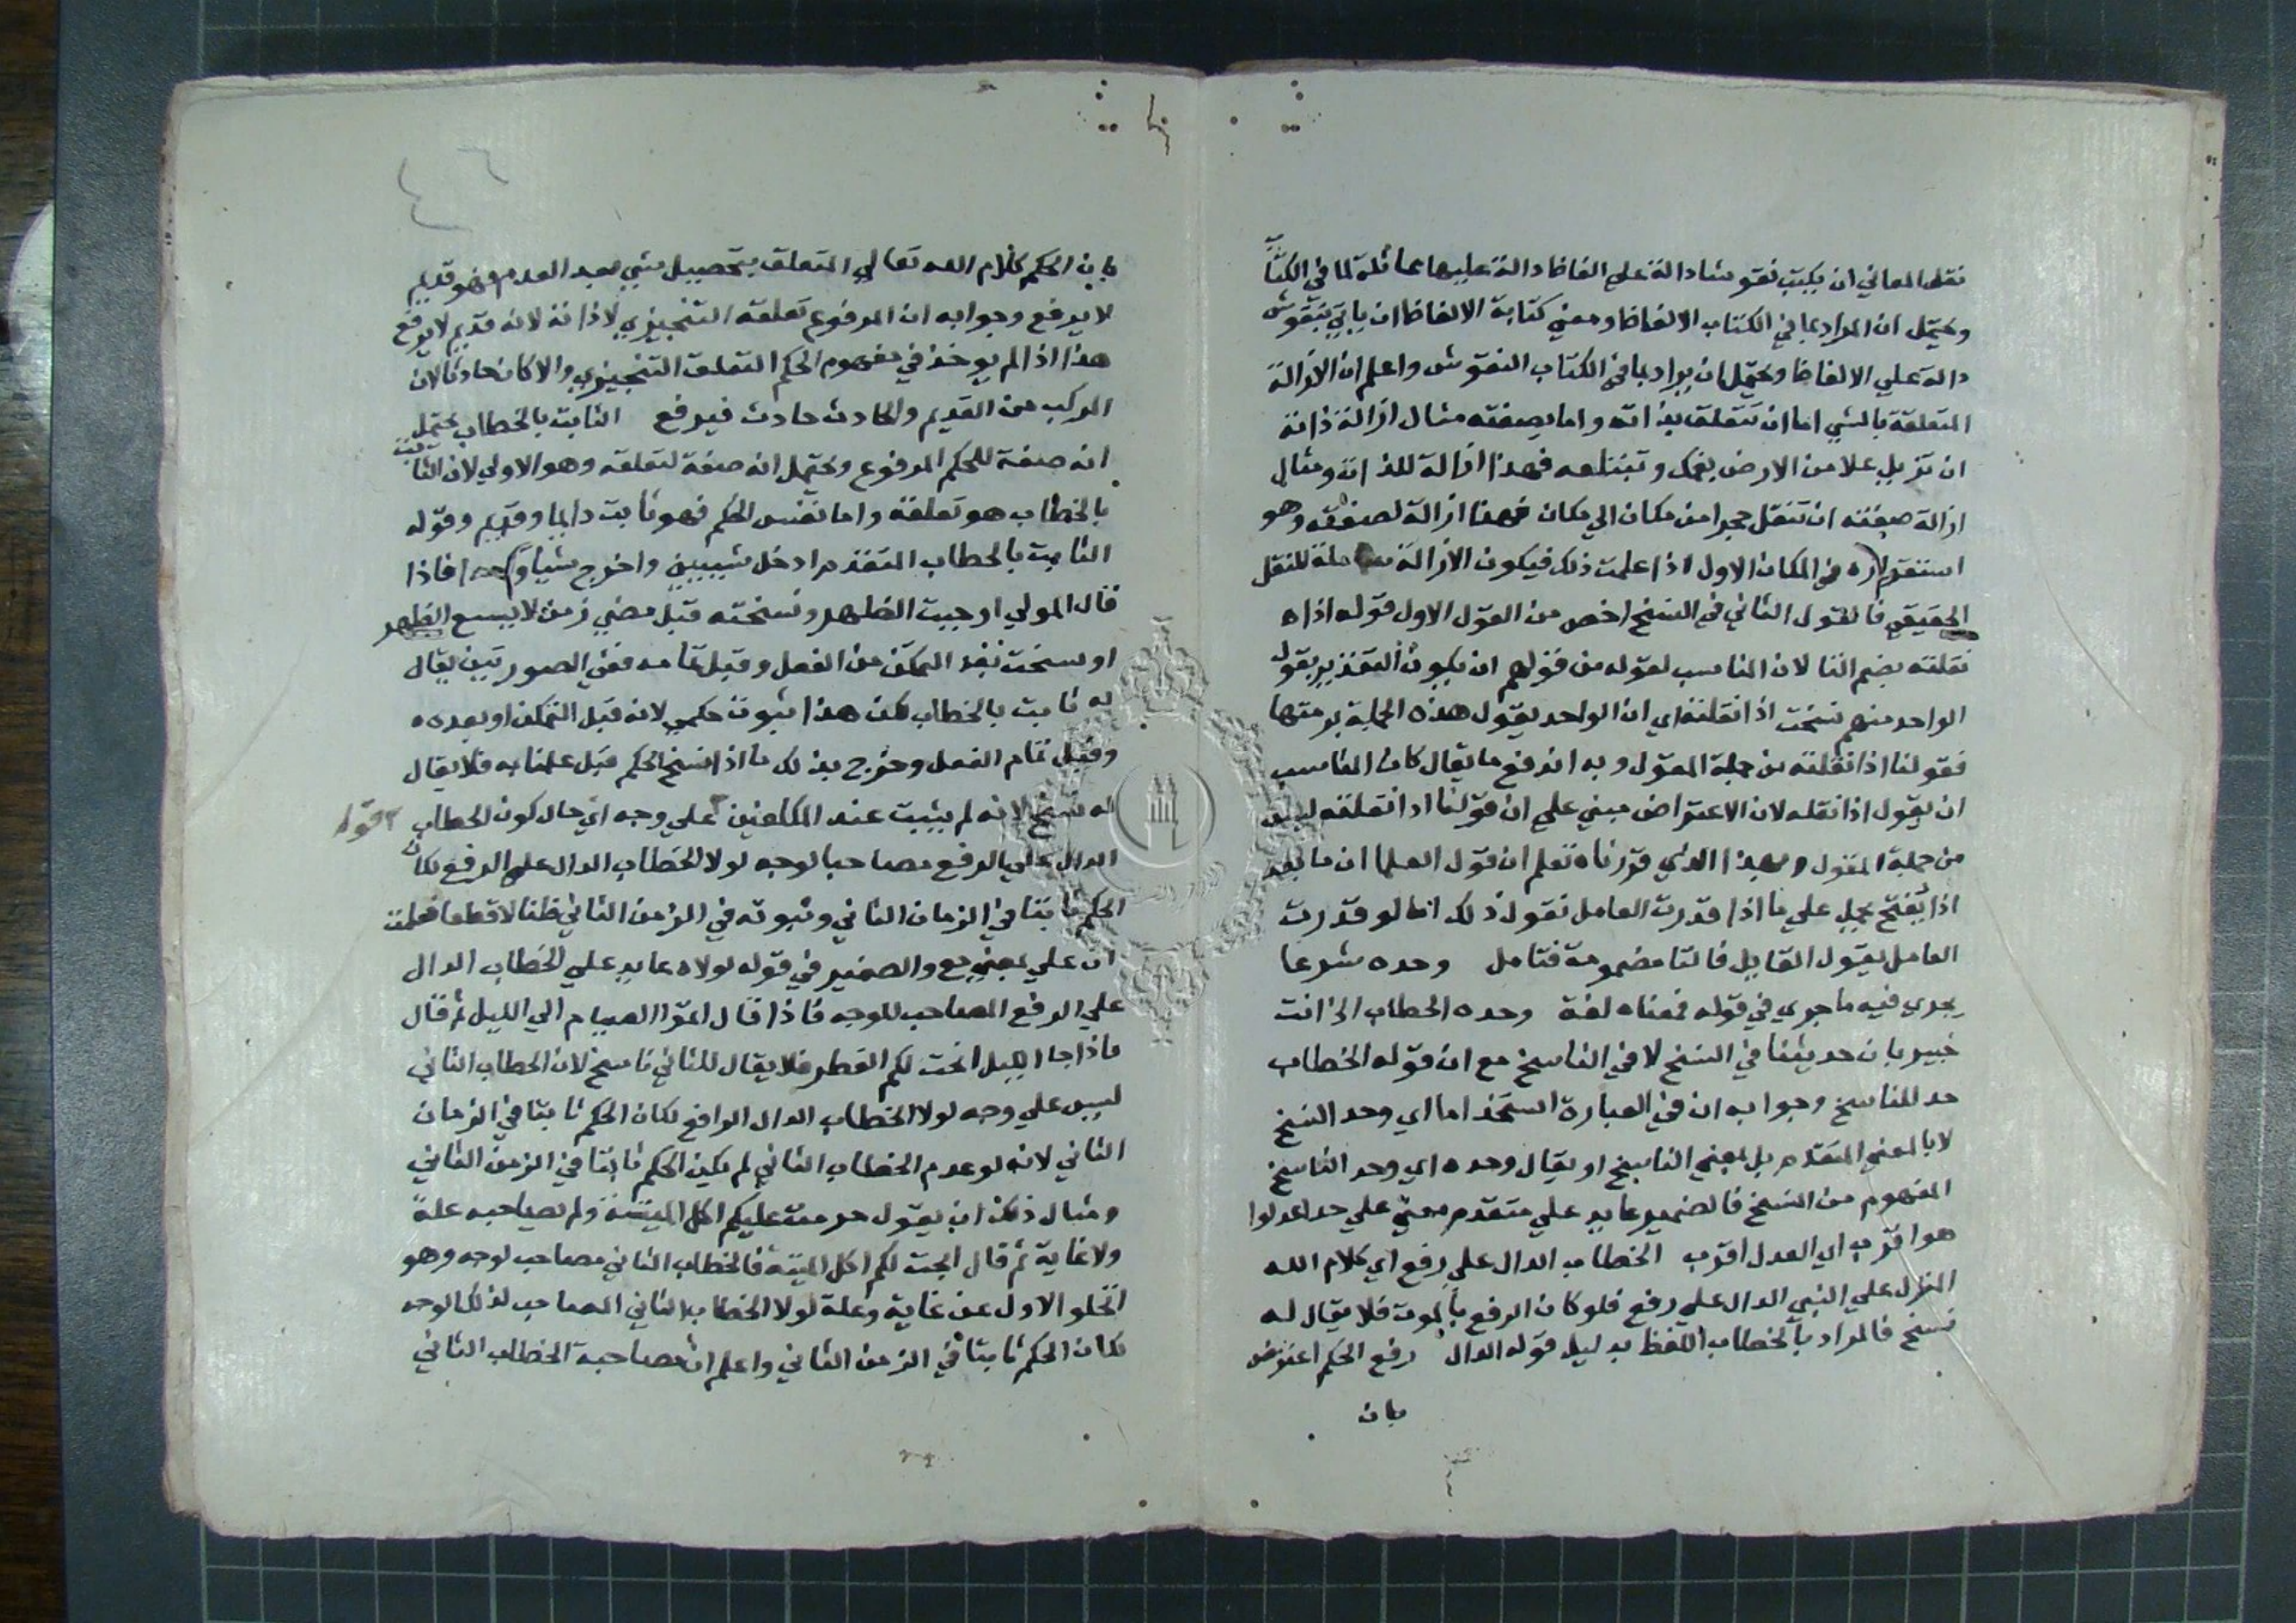 نقل المعاني ان يكتب نقوشا دالة على الفاظ دالة عليها مماثلة لما في الكتاب
ويحتمل ان المراد بما في الكتاب الالفاظ ومعني كتابة الالفاظ ان ياتي بنقوش
دالة علي الالفاظ ويحتمل ان يراد بما في الكتاب النقوش واعلم ان الازالة
المتعلقة بالشي اما ان تتعلق بذاته واما بصفته مثال ازالة ذاته
ان تزيل علا من الارض بفمك وتبتلعه فهذا ازالة للذات ومثال
ازالة صفته ان تنقل حجرا من مكان الي مكان فهذا ازالة لصفته وهو
استقراره في المكان الاول اذا علمت ذلك فيكون الازالة شاملة للنقل
الحقيقي فالقول الثاني في النسخ اخص من القول الاول قوله اذا
نقلته بضم التا لان المناسب لقوله من قولهم ان يكون التقدير بقول
الواحد منهم نسخت اذا نقلته اي ان الواحد يقول هذه الجملة برمتها
فقولنا اذا نقلته من جملة المقول وبه اندفع ما يقال كان المناسب
ان يقول اذا نقله لان الاعتراض مبني علي ان قولنا اذا نقلته ليس
من جملة المقول وبهذا الذي قررناه تعلم ان قول العلما ان ما بعد
اذا يفتح يحمل علي ما اذا قدرت العامل تقول ذلك اما لو قدرت
العامل يقول القايل فالتا مضمومة فتامل وحده شرعا
يجري فيه ما جري في قوله فمعناه لغة وحده الخطاب الخ انت
خبير بان حديثنا في النسخ لا في الناسخ مع ان قوله الخطاب
حد للناسخ وجوابه ان في العبارة استخداما اي وحد النسخ
لا بالمعني المتقدم بل بمعني الناسخ او يقال وحده اي وحد الناسخ
المفهوم من النسخ فالضمير عايد علي متقدم معني علي حد اعدلوا
هو اقرب اي العدل اقرب الخطاب الدال علي رفع اي كلام الله
المنزل علي النبي الدال علي رفع فلو كان الرفع بالموت فلا يقال له
نسخ فالمراد بالخطاب اللفظ بدليل قوله الدال رفع الحكم اعترض
بان
٤٦
بان الحكم كلام الله تعالي المتعلق بتحصيل شي بعد العدم فهو قديم
لا يرفع وجوابه ان المرفوع تعلقه التنجيزي لا ذاته لانه قديم لا يرفع
هذا اذا لم يوخذ في مفهوم الحكم التعلق التنجيزي والا كان حادثا لان
المركب من القديم والحادث حادث فيرفع الثابت بالخطاب يحتمل
انه صفة للحكم المرفوع ويحتمل انه صفة لتعلقه وهو الاولي لان الثابت
بالخطاب هو تعلقه واما نفس الحكم فهو ثابت دايما وقديم وقوله
الثابت بالخطاب المتقدم ادخل شييين واخرج شيا واحدا فاذا
قال المولي اوجبت الظهر ونسخته قبل مضي زمن لا يسع الظهر
او نسخت بعد التمكن من الفعل وقبل تمامه ففي الصورتين يقال
له ثابت بالخطاب لكن هذا ثبوت حكمي لانه قبل التمكن او بعده
وقبل تمام الفعل وخرج بذلك ما اذا نسخ الحكم قبل علمنا به فلا يقال
له نسخ لانه لم يثبت عند المكلفين علي وجه اي حال كون الخطاب
قوله
الدال علي الرفع مصاحبا لوجه لولا الخطاب الدال علي الرفع لكان
الحكم ثابتا في الزمان الثاني وثبوته في الزمن الثاني ظنا لا قطعا فعلمت
ان علي بمعني مع والضمير في قوله لولاه عايد علي الخطاب الدال
علي الرفع المصاحب للوجه فاذا قال اتموا الصيام الي الليل ثم قال
فاذا جا الليل ابحت لكم الفطر فلا يقال للثاني ناسخ لان الخطاب الثاني
ليس علي وجه لولا الخطاب الدال الرافع لكان الحكم ثابتا في الزمان
الثاني لانه لو عدم الخطاب الثاني لم يكن الحكم ثابتا في الزمن الثاني
ومثال ذلك ان يقول حرمت عليكم اكل الميتة ولم يصاحبه علة
ولا غاية ثم قال ابحت لكم اكل الميتة فالخطاب الثاني مصاحب لوجه وهو
انخلو الاول عن غاية وعلة لولا الخطاب الثاني المصاحب لذلك الوجه
لكان الحكم ثابتا في الزمن الثاني واعلم ان مصاحبة الخطاب الثاني